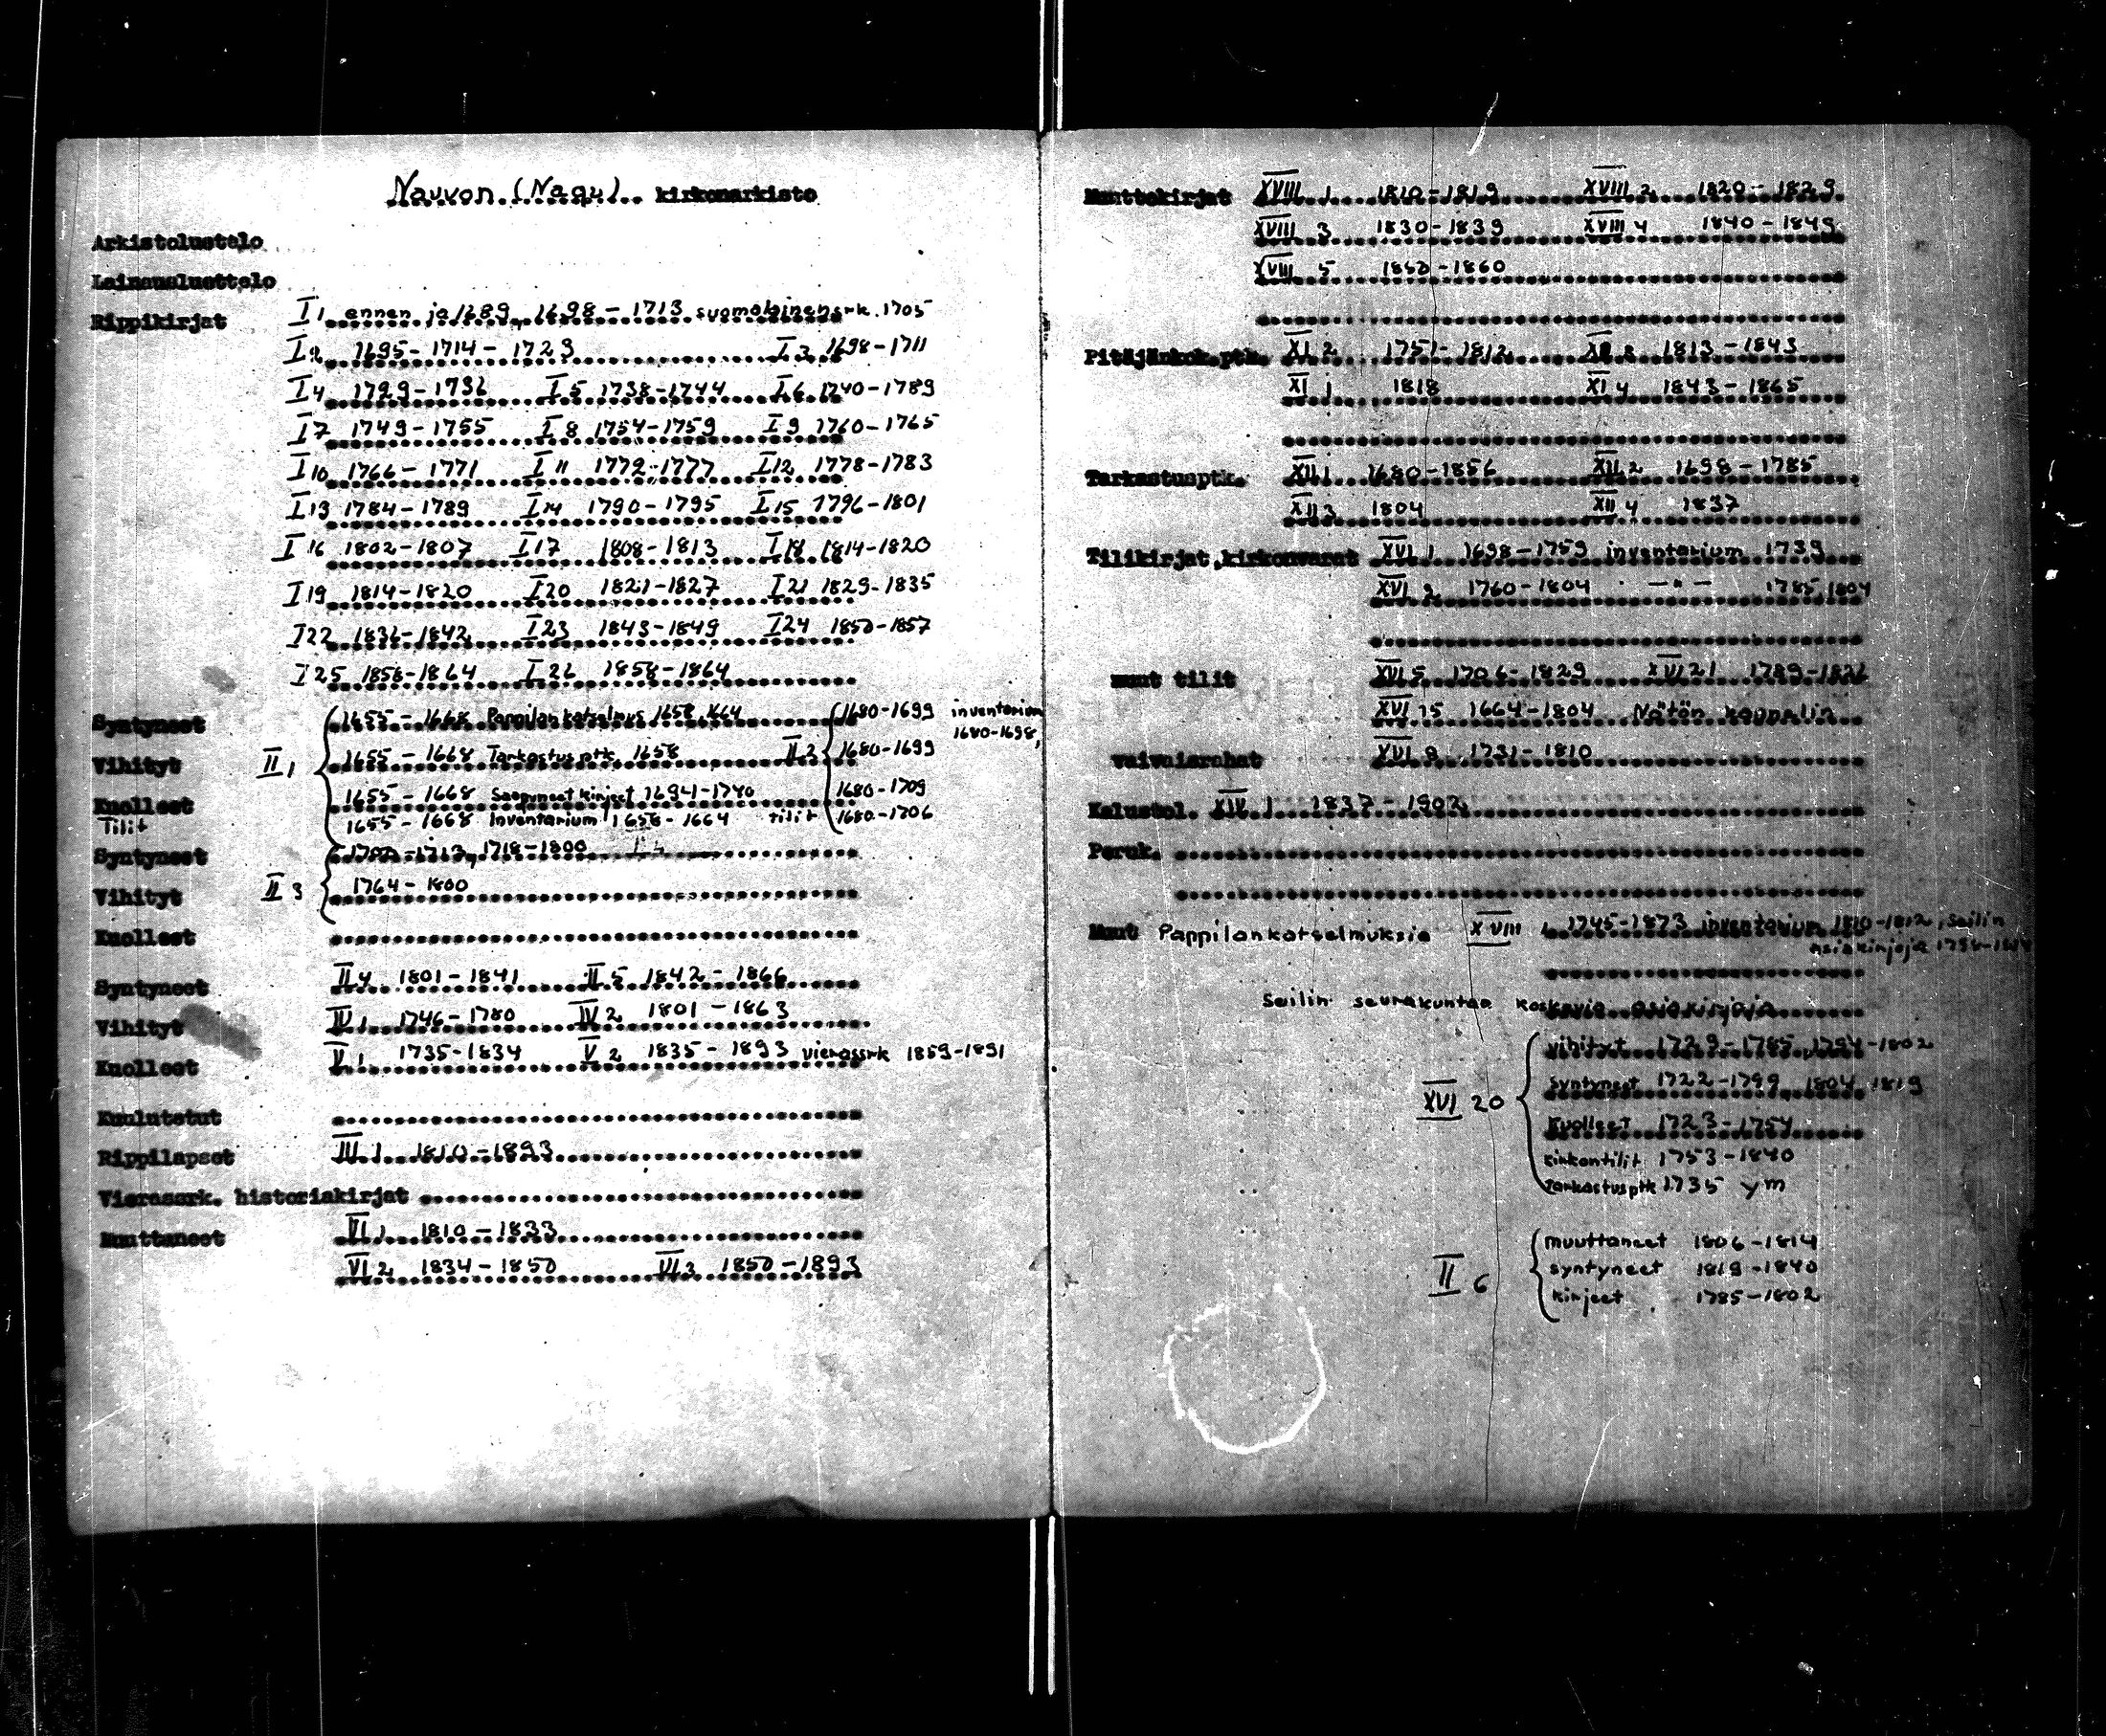 Nauvon (Nagu) kirkonarkisto
Arkistoluettelo
Lainausluettelo
Rippikirjat I 1 ennen ja 1689, 1698-1713 suomalainen srk. 1705
I 2 1695-1714-1723 I 3 1698-1711
I 4 1729-1736 I 5 1738-1744 I 6 1740-1789
I 7 1749-1755 I 8 1754-1759 I 9 1760-1765
I 10 1766-1771 I 11 1772-1777 I 12 1778-1783
I 13 1784-1789 I 14 1790-1795 I 15 1796-1801
I 16 1802-1807 I 17 1808-1813 I 18 1814-1820
I 19 1814-1820 I 20 1821-1827 I 21 1829-1835
I 22 1836-1842 I 23 1843-1849 I 24 1850-1857
I 25 1858-1864 I 26 1858-1864
Syntyneet 1655-1668 Pappilankatselmus 1658, 1664 1680-1699 inventarium 1680-1698,
Vihityt II 1 1655-1668 Tarkastusptk. 1658 II 2 1680-1699
Kuolleet 1655-1668 Saapuneet kirjeet 1694-1740 1680-1709
Tilit 1655-1668 Inventarium 1658-1664 tilit 1680-1706
Syntyneet -1713, 1718-1800
Vihityt II 3 1764-1800
Kuolleet
Syntyneet II 4 1801-1841 II 5 1842-1866
Vihityt IV 1 1746-1780 IV 2 1801-1863
Kuolleet V 1 1735-1834 V 2 1835-1893 vierassrk 1859-1891
Kuulutetut
Rippilapset III 1 1810-1893
Vierassrk. historiakirjat
Muuttaneet VI 1 1810-1833
VI 2 1834-1850 VI 3 1850-1893
Muuttokirjat XVIII 1 1810-1819 XVIII 2 1820-1829
XVIII 3 1830-1839 XVIII 4 1840-1849
XVIII 5 1850-1860
Pitäjänkok.ptk. XI 2 1751-1812 1813-1843
XI 1 1818 XI 4 1843-1865
Tarkastusptk. XII 1 1680-1856 XII 2 1698-1785
XII 3 1804 XII 4 1837
Tilikirjat, kirkonvarat XVI 1 1698-1759 inventarium 1739
XVI 2 1760-1804 -"- 1785 1804
muut tilit XVI 5 1706-1829 XVI 21 1789-1826
XVI 15 1664-1804 Nötön kappelin
vaivaisrahat XVI 8 1731-1810
Kalustol. XIV 1 1837-1902
Peruk.
Muut Pappilankatselmuksia XVIII 1 1745-1873 inventarium 1810-1812, Seilin
asiakirjoja
Seilin seurakuntaa koskevia asiakirjoja
vihityt 1729-1785, 1794-1802
XVI 20 syntyneet 1722-1799, 1804, 1819
Kuolleet 1723-1754
kirkontilit 1753-1840
tarkastusptk 1735 ym
muuttaneet 1806-1814
II 6 syntyneet 1819-1840
kirjeet 1785-1802